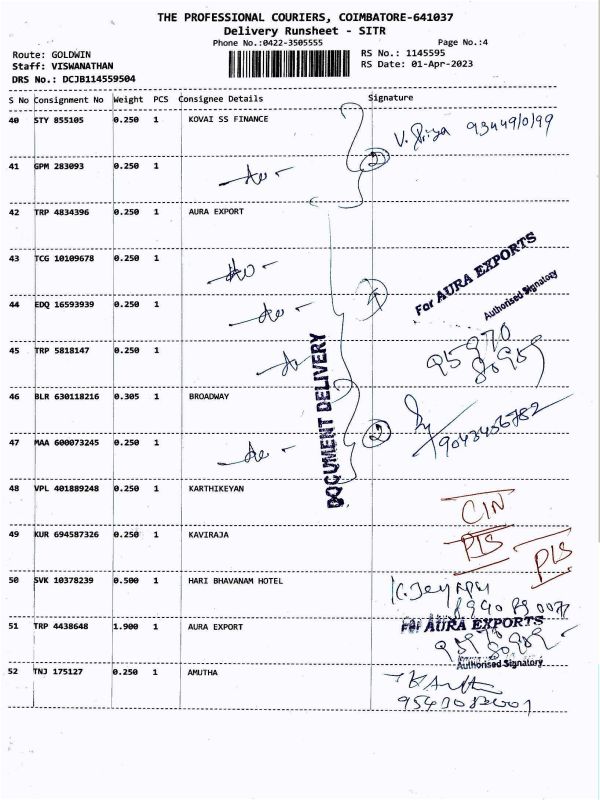 THE PROFESSIONAL COURIERS, COIMBATORE-641037
Delivery Runsheet - SITR
Phone No.:0422-3505555 Page No.:4
Route: GOLDWIN RS No.: 1145595
Staff: VISWANATHAN RS Date: 01-Apr-2023
DRS No.: DCJB114559504
S No Consignment No Weight PCS Consignee Details Signature
40 STY 855105 0.250 1 KOVAI SS FINANCE
V. Priya
41 GPM 283093 0.250 1
2
42 TRP 4834396 0.250 1 AURA EXPORT
43 TCG 10109678 0.250 1
For AURA EXPORTS
44 EDQ 16593939 0.250 1
Authorised Signatory
45 TRP 5818147 0.250 1
95970
80989
DOCUMENT DELIVERY
46 BLR 630118216 0.305 1 BROADWAY
47 MAA 600073245 0.250 1
2
48 VPL 401889248 0.250 1 KARTHIKEYAN
CIN
49 KUR 694587326 0.250 1 KAVIRAJA
PIS
PIS
50 SVK 10378239 0.500 1 HARI BHAVANAM HOTEL
51 TRP 4438648 1.900 1 AURA EXPORT
For AURA EXPORTS
95970
80989
Authorised Signatory
52 TNJ 175127 0.250 1 AMUTHA